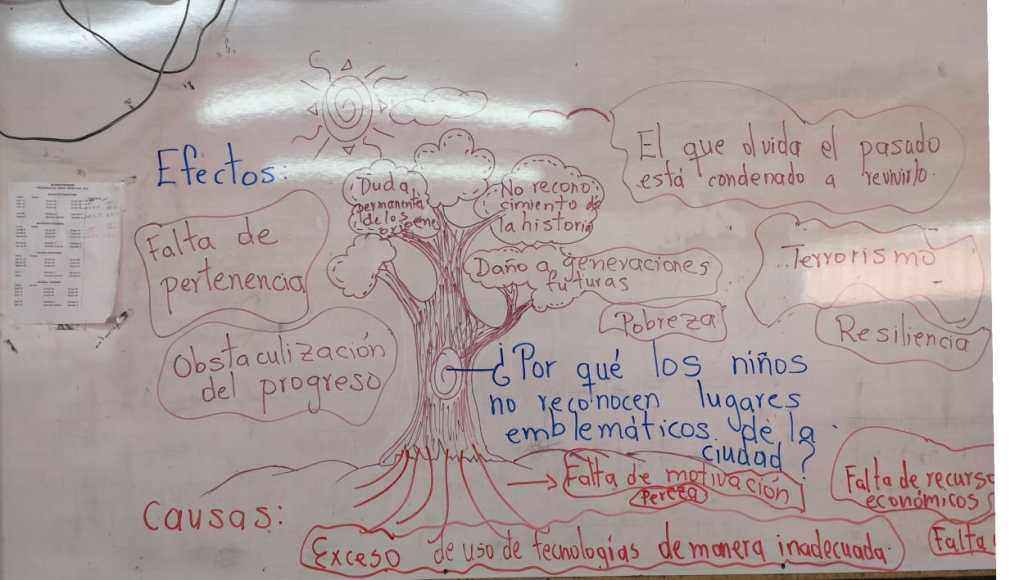 Efectos:
Duda
permanente
de los
orígenes
No recono
cimiento de
la historia
El que olvida el pasado
está condenado a revivirlo.
Falta de
pertenencia
Daño a generaciones
futuras
Terrorismo
Pobreza
Resiliencia
Obstaculización
del progreso
¿Por qué los niños
no reconocen lugares
emblemáticos de la
ciudad?
Falta de motivación
Pereza
Falta de recurso
económicos
Causas:
Exceso de uso de tecnologías de manera inadecuada.
Falta